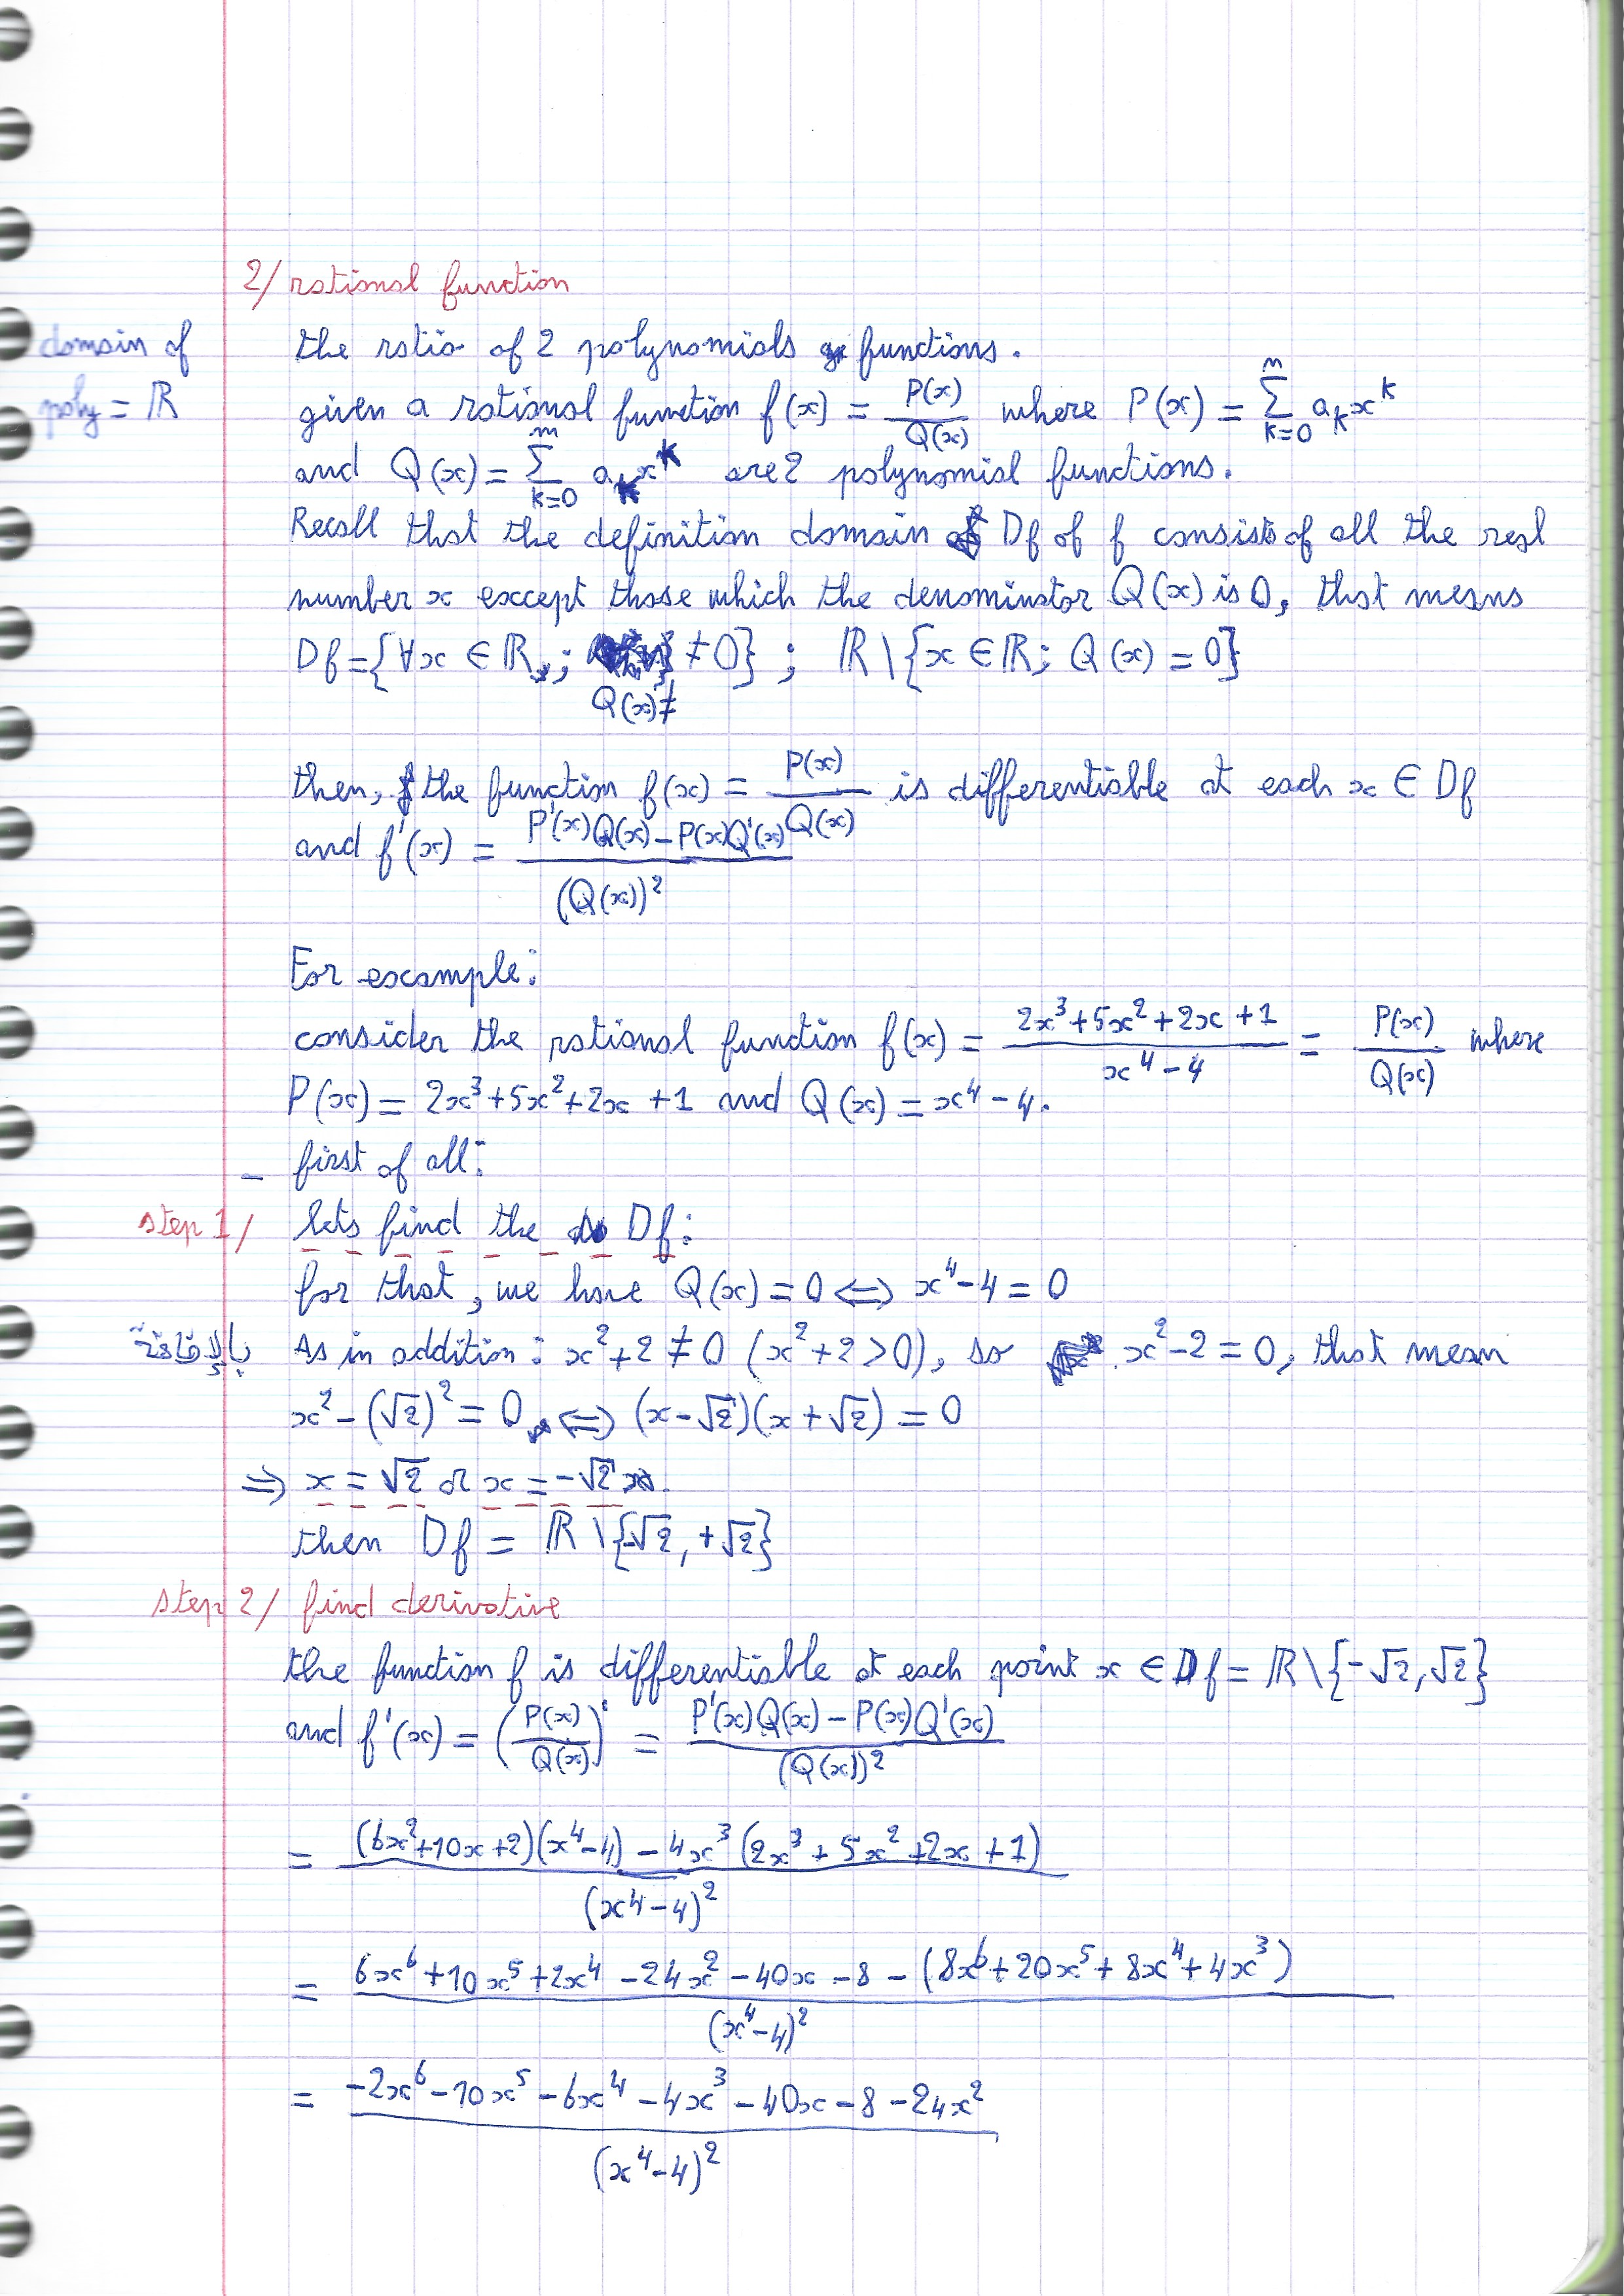 2/ rational function
domain of
poly = ℝ
the ratio of 2 polynomials functions.
given a rational function f(x) = P(x)/Q(x) where P(x) = ∑_{k=0}^{n} a_k x^k
and Q(x) = ∑_{k=0}^{m} a_k x^k are 2 polynomial functions.
Recall that the definition domain Df of f consists of all the real
number x except those which the denominator Q(x) is 0, that means
Df = {∀x ∈ ℝ ; ≠ 0} ; ℝ \ {x ∈ ℝ; Q(x) = 0}
Q(x) ≠
then, the function f(x) = P(x)/Q(x) is differentiable at each x ∈ Df
and f'(x) = (P'(x)Q(x) - P(x)Q'(x))/(Q(x))²
For example:
consider the rational function f(x) = (2x³ + 5x² + 2x + 1)/(x⁴ - 4) = P(x)/Q(x) where
P(x) = 2x³ + 5x² + 2x + 1 and Q(x) = x⁴ - 4.
- first of all:
step 1/ lets find the Df:
for that, we have Q(x) = 0 ⟺ x⁴ - 4 = 0
بالإضافة As in addition: x² + 2 ≠ 0 (x² + 2 > 0), so x² - 2 = 0, that mean
x² - (√2)² = 0 ⟺ (x - √2)(x + √2) = 0
⟹ x = √2 or x = -√2
then Df = ℝ \ {-√2, +√2}
step 2/ find derivative
the function f is differentiable at each point x ∈ Df = ℝ \ {-√2, √2}
and f'(x) = (P(x)/Q(x))' = (P'(x)Q(x) - P(x)Q'(x))/(Q(x))²
= ((6x² + 10x + 2)(x⁴ - 4) - 4x³(2x³ + 5x² + 2x + 1))/(x⁴ - 4)²
= (6x⁶ + 10x⁵ + 2x⁴ - 24x² - 40x - 8 - (8x⁶ + 20x⁵ + 8x⁴ + 4x³))/(x⁴ - 4)²
= (-2x⁶ - 10x⁵ - 6x⁴ - 4x³ - 40x - 8 - 24x²)/(x⁴ - 4)²